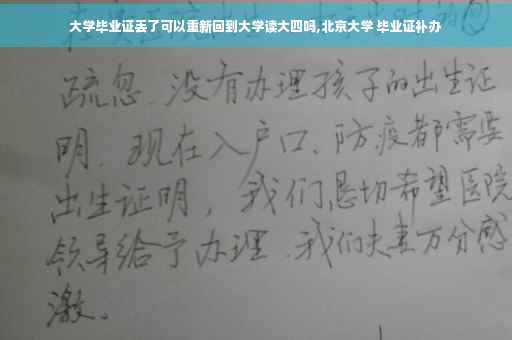 大学毕业证丢了可以重新回到大学读大四吗,北京大学 毕业证补办
疏忽、没有办理孩子的出生证
明、现在入户口、防疫都需要
出生证明，我们恳切希望医院
领导给予办理、我们夫妻万分感
激。